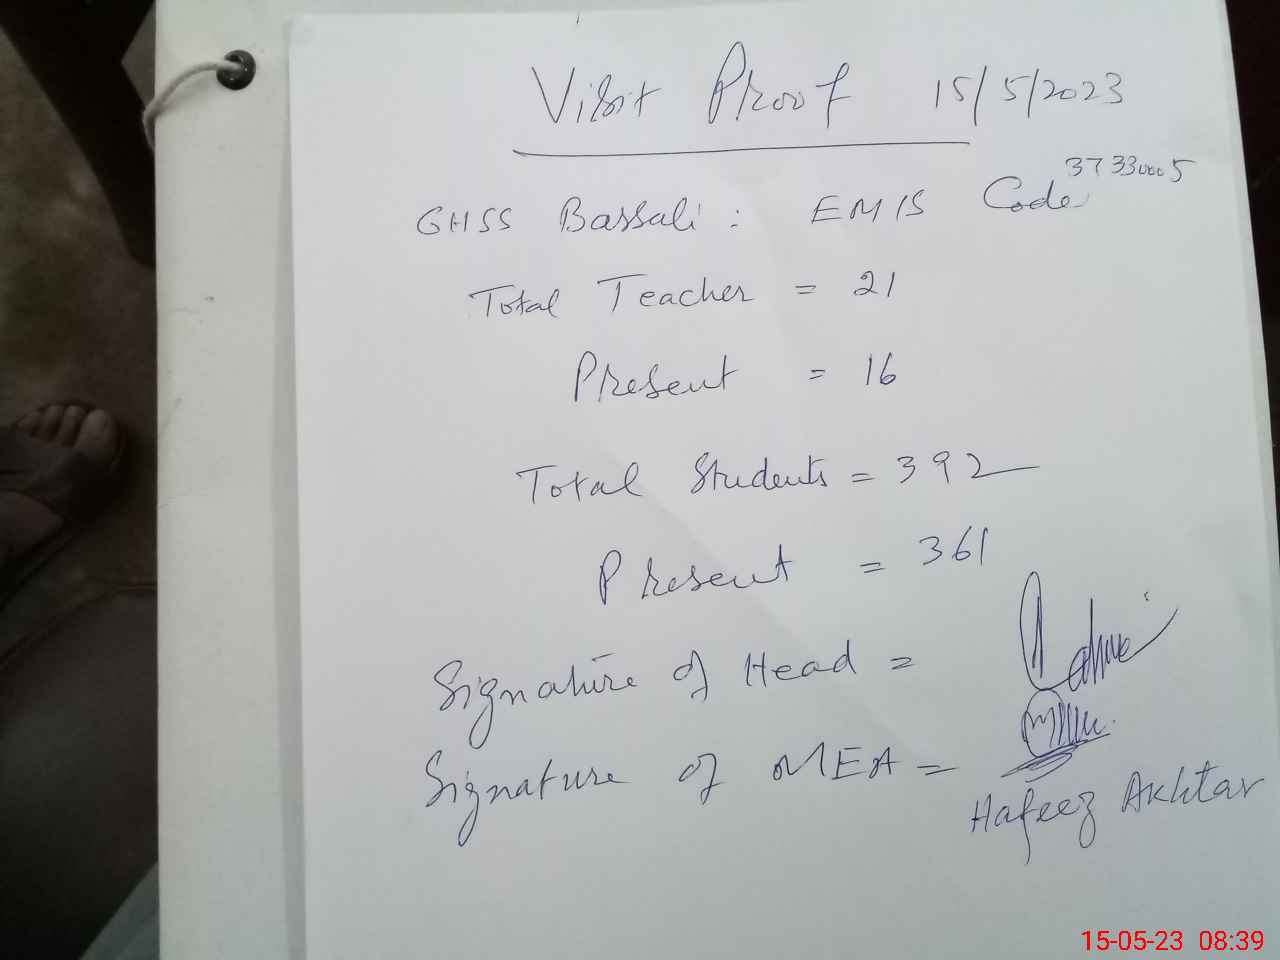 Visit Proof 15/5/2023
GHSS Bassali : EMIS Code 37330005
Total Teacher = 21
Present = 16
Total Students = 392
Present = 361
Signature of Head =
Signature of MEA =
Hafeez Akhtar
15-05-23 08:39